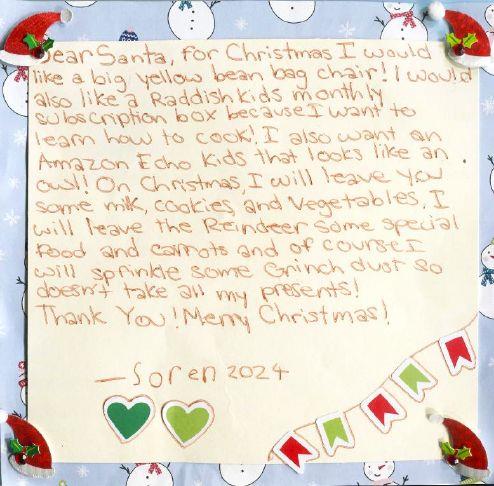 Dear Santa, for Christmas I would
like a big yellow bean bag chair! I would
also like a Raddish Kids monthly
subscription box because I want to
learn how to cook! I also want an
Amazon Echo Kids that looks like an
owl! On Christmas, I will leave you
some milk, cookies, and vegetables. I
will leave the Reindeer some special
food and carrots and of course I
will sprinkle some Grinch dust so
doesn't take all my presents!
Thank You! Merry Christmas!
—Soren 2024